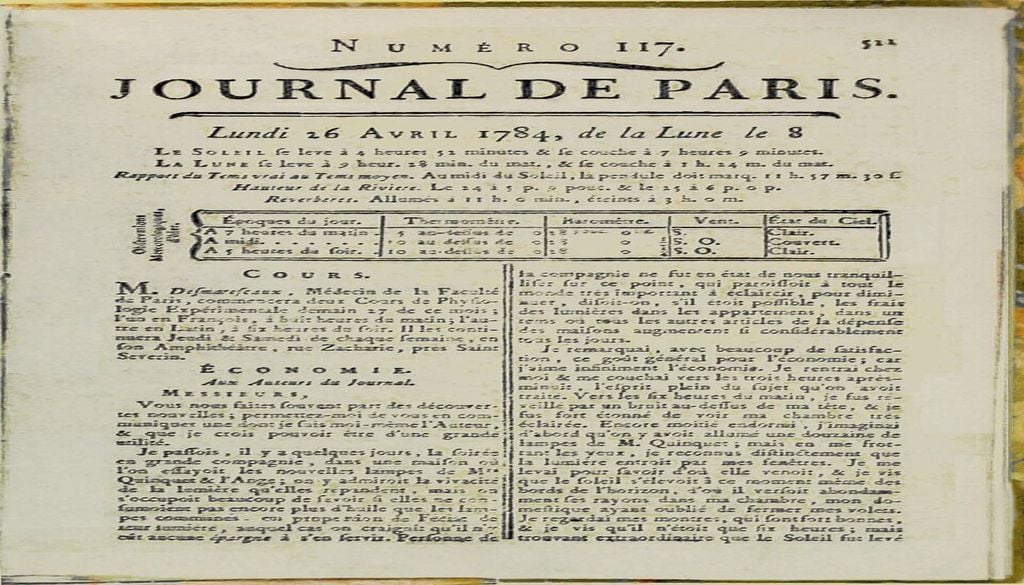 NUMÉRO 117.
522
JOURNAL DE PARIS.
Lundi 26 AVRIL 1784, de la Lune le 8
LE SOLEIL se leve à 4 heures 52 minutes & se couche à 7 heures 9 minutes.
LA LUNE se leve à 9 heur. 28 min. du mat., & se couche à 1 h. 24 m. du mat.
Rapport du Tems vrai au Tems moyen. Au midi du Soleil, la pendule doit marq. 11 h. 57 m. 30 s.
Hauteur de la Riviere. Le 24 à 5 p. 9 pouc. & le 25 à 6 p. 0 p.
Reverberes. Allumés à 11 h. 0 min., éteints à 3 h. 0 m.
Observations Météorologiques, d'hier.
Époques du jour. Thermomètre. Baromètre. Vent. État du Ciel.
A 7 heures du matin 5 au-dessus de 0 28 S. Clair.
A midi. 10 au dessus de 0 28 S. O. Couvert.
A 5 heures du soir. 10 au-dessus de 0 28 S. O. Clair.
COURS.
M. Desmareseaux, Médecin de la Faculté
de Paris, commencera deux Cours de Physio-
logie Expérimentale demain 27 de ce mois;
l'un en François, à huit heures du matin; l'au-
tre en Latin, à six heures du soir. Il les conti-
nuera Jeudi & Samedi de chaque semaine, en
son Amphithéatre, rue Zacharie, près Saint
Severin.
ÉCONOMIE.
Aux Auteurs du Journal.
MESSIEURS,
Vous nous faites souvent part des découver-
tes nouvelles; permettez-moi de vous en com-
muniquer une dont je suis moi-même l'Auteur,
& que je crois pouvoir être d'une grande
utilité.
Je passois, il y a quelques jours, la soirée
en grande compagnie, dans une maison où
l'on essayoit les nouvelles lampes de Mrs
Quinquet & l'Ange; on y admiroit la vivacité
de la lumière qu'elles répandent, mais on
s'occupoit beaucoup de savoir si elles ne con-
sumoient pas encore plus d'huile que les lam-
pes communes, en proportion de l'éclat de
leur lumière, auquel cas on craignoit qu'il n'y
eût aucune épargne à s'en servir. Personne de
la compagnie ne fut en état de nous tranquil-
liser sur ce point, qui paroissoit à tout le
monde très important à éclaircir, pour dimi-
nuer, disoit-on, s'il étoit possible, les frais
des lumières dans les appartemens, dans un
tems où tous les autres articles de la dépense
des maisons augmentent si considérablement
tous les jours.
Je remarquai, avec beaucoup de satisfac-
tion, ce goût général pour l'économie; car
j'aime infiniment l'économie. Je rentrai chez
moi & me couchai vers les trois heures après-
minuit, l'esprit plein du sujet qu'on avoit
traité. Vers les six heures du matin, je fus ré-
veillé par un bruit au-dessus de ma tête, & je
fus fort étonné de voir ma chambre très
éclairée. Encore moitié endormi, j'imaginai
d'abord qu'on y avoit allumé une douzaine de
lampes de M. Quinquet; mais en me frot-
tant les yeux, je reconnus distinctement que
la lumière entroit par mes fenêtres. Je me
levai pour savoir d'où elle venoit, & je vis
que le soleil s'élevoit à ce moment même des
bords de l'horizon, d'où il versoit abondam-
ment ses rayons dans ma chambre, mon do-
mestique ayant oublié de fermer mes volets.
Je regardai mes montres, qui sont fort bonnes,
& je vis qu'il n'étoit que six heures; mais
trouvant extraordinaire que le Soleil fut levé